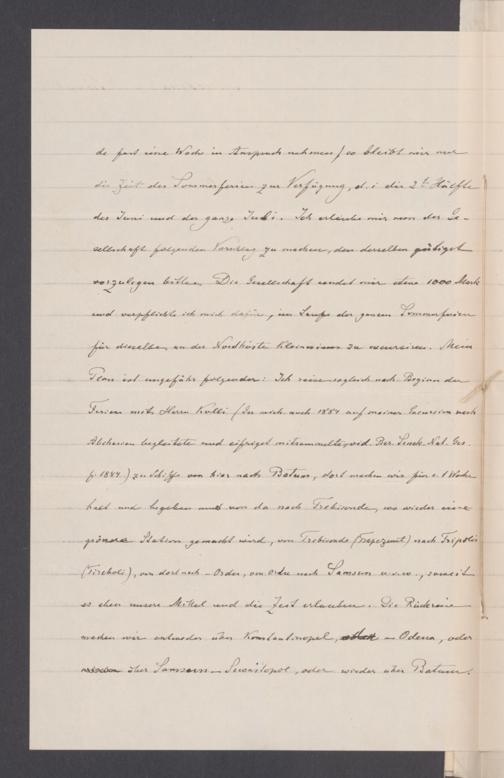 de fast eine Woche in Anspruch nehmen) so bleibt mir nur
die Zeit der Sommerferien zur Verfügung, d. i. die 2te Hälfte
des Juni und der ganze Juli. Ich erlaube mir nun der Ge-
sellschaft folgenden Vorschlag zu machen, den derselben gütigst
vorzulegen bitte. Die Gesellschaft sendet mir etwa 1000 Mark
und verpflichte ich mich dafür, im Laufe der ganzen Sommerferien
für dieselbe an der Nordküste Kleinasiens zu excursiren. Mein
Plan ist ungefähr folgender: Ich reise sogleich nach Beginn der
Ferien mit Herrn (der mich auch 1884 auf meiner Excursion nach
Abchasien begleitete und eifrigst mitsammelte, vid. Ber. Senck. Nat. Ges.
f. 1884.) zu Schiffe von hier nach Batum, dort machen wir für c. 1 Woche
halt und begeben uns von da nach Trebisonde, wo wieder eine
grössere Station gemacht wird, von Trebisonde (Trapezunt) nach Tripolis
(Tireboli), von dort nach Ordu, von Ordu nach Samsun u.s.w., soweit
es eben unsere Mittel und die Zeit erlauben. Die Rückreise
machen wir entweder über Konstantinopel, – Odessa, oder
über Samsun – Sewastopol, oder wieder über Batum.